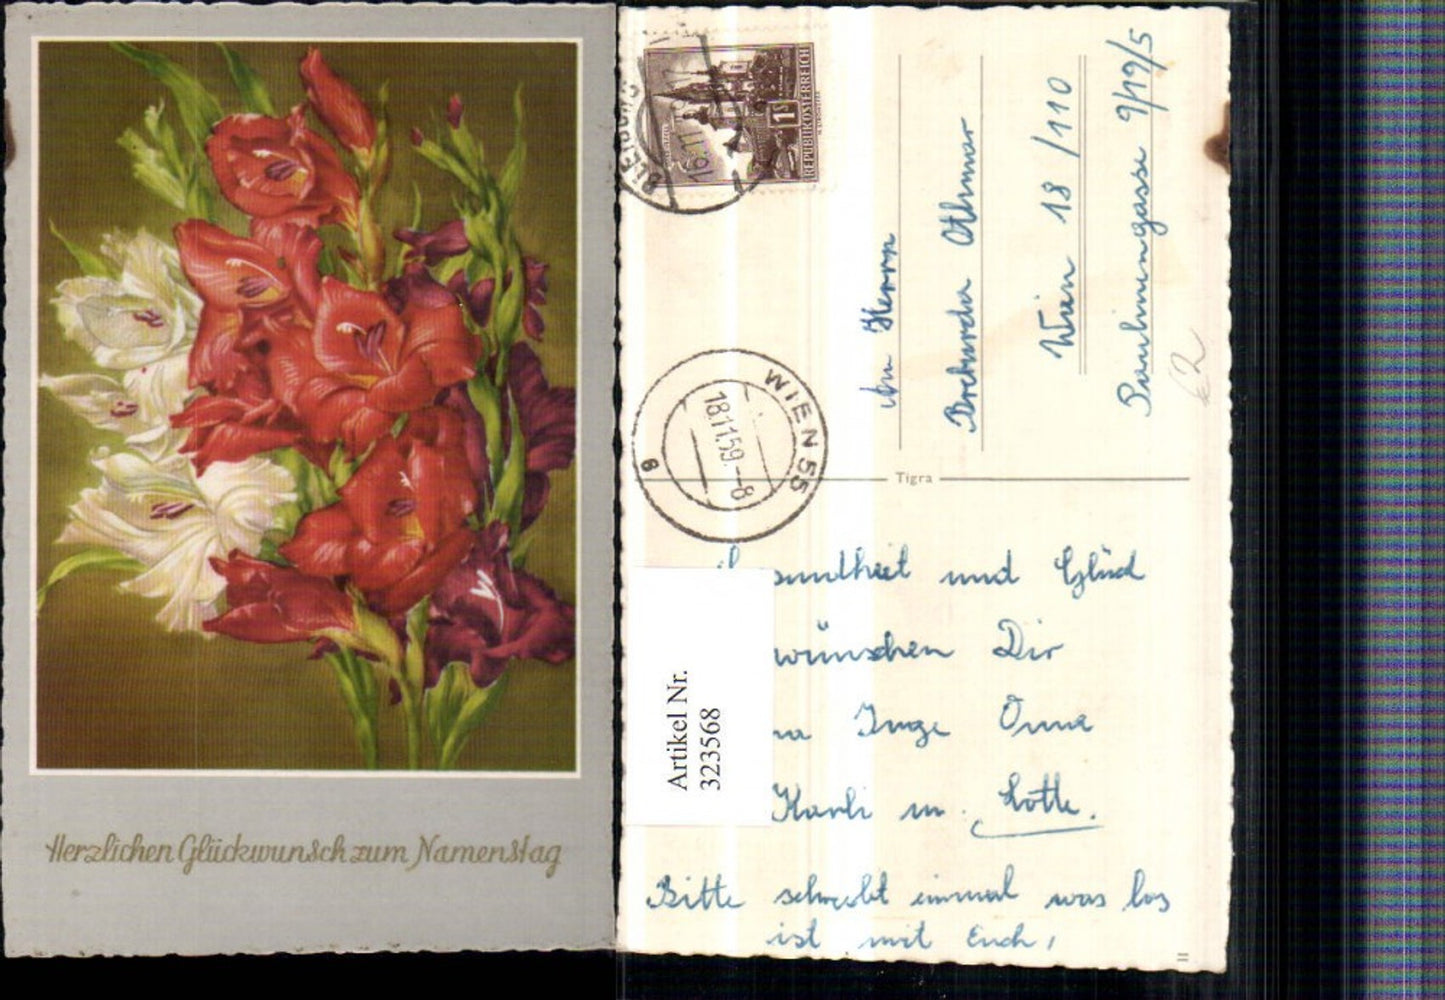 Herzlichen Glückwunsch zum Namenstag
REPUBLIK ÖSTERREICH
1S
BLEIBURG
16.11
WIEN 55
18.11.59.-8
8
An Herrn
Othmar
Wien 18 /110
9/19/5
Tigra
und Glück
wünschen Dir
Inge Oma
Karli u. Lotte.
Bitte schreibt einmal was los
ist mit Euch,
Artikel Nr.
323568